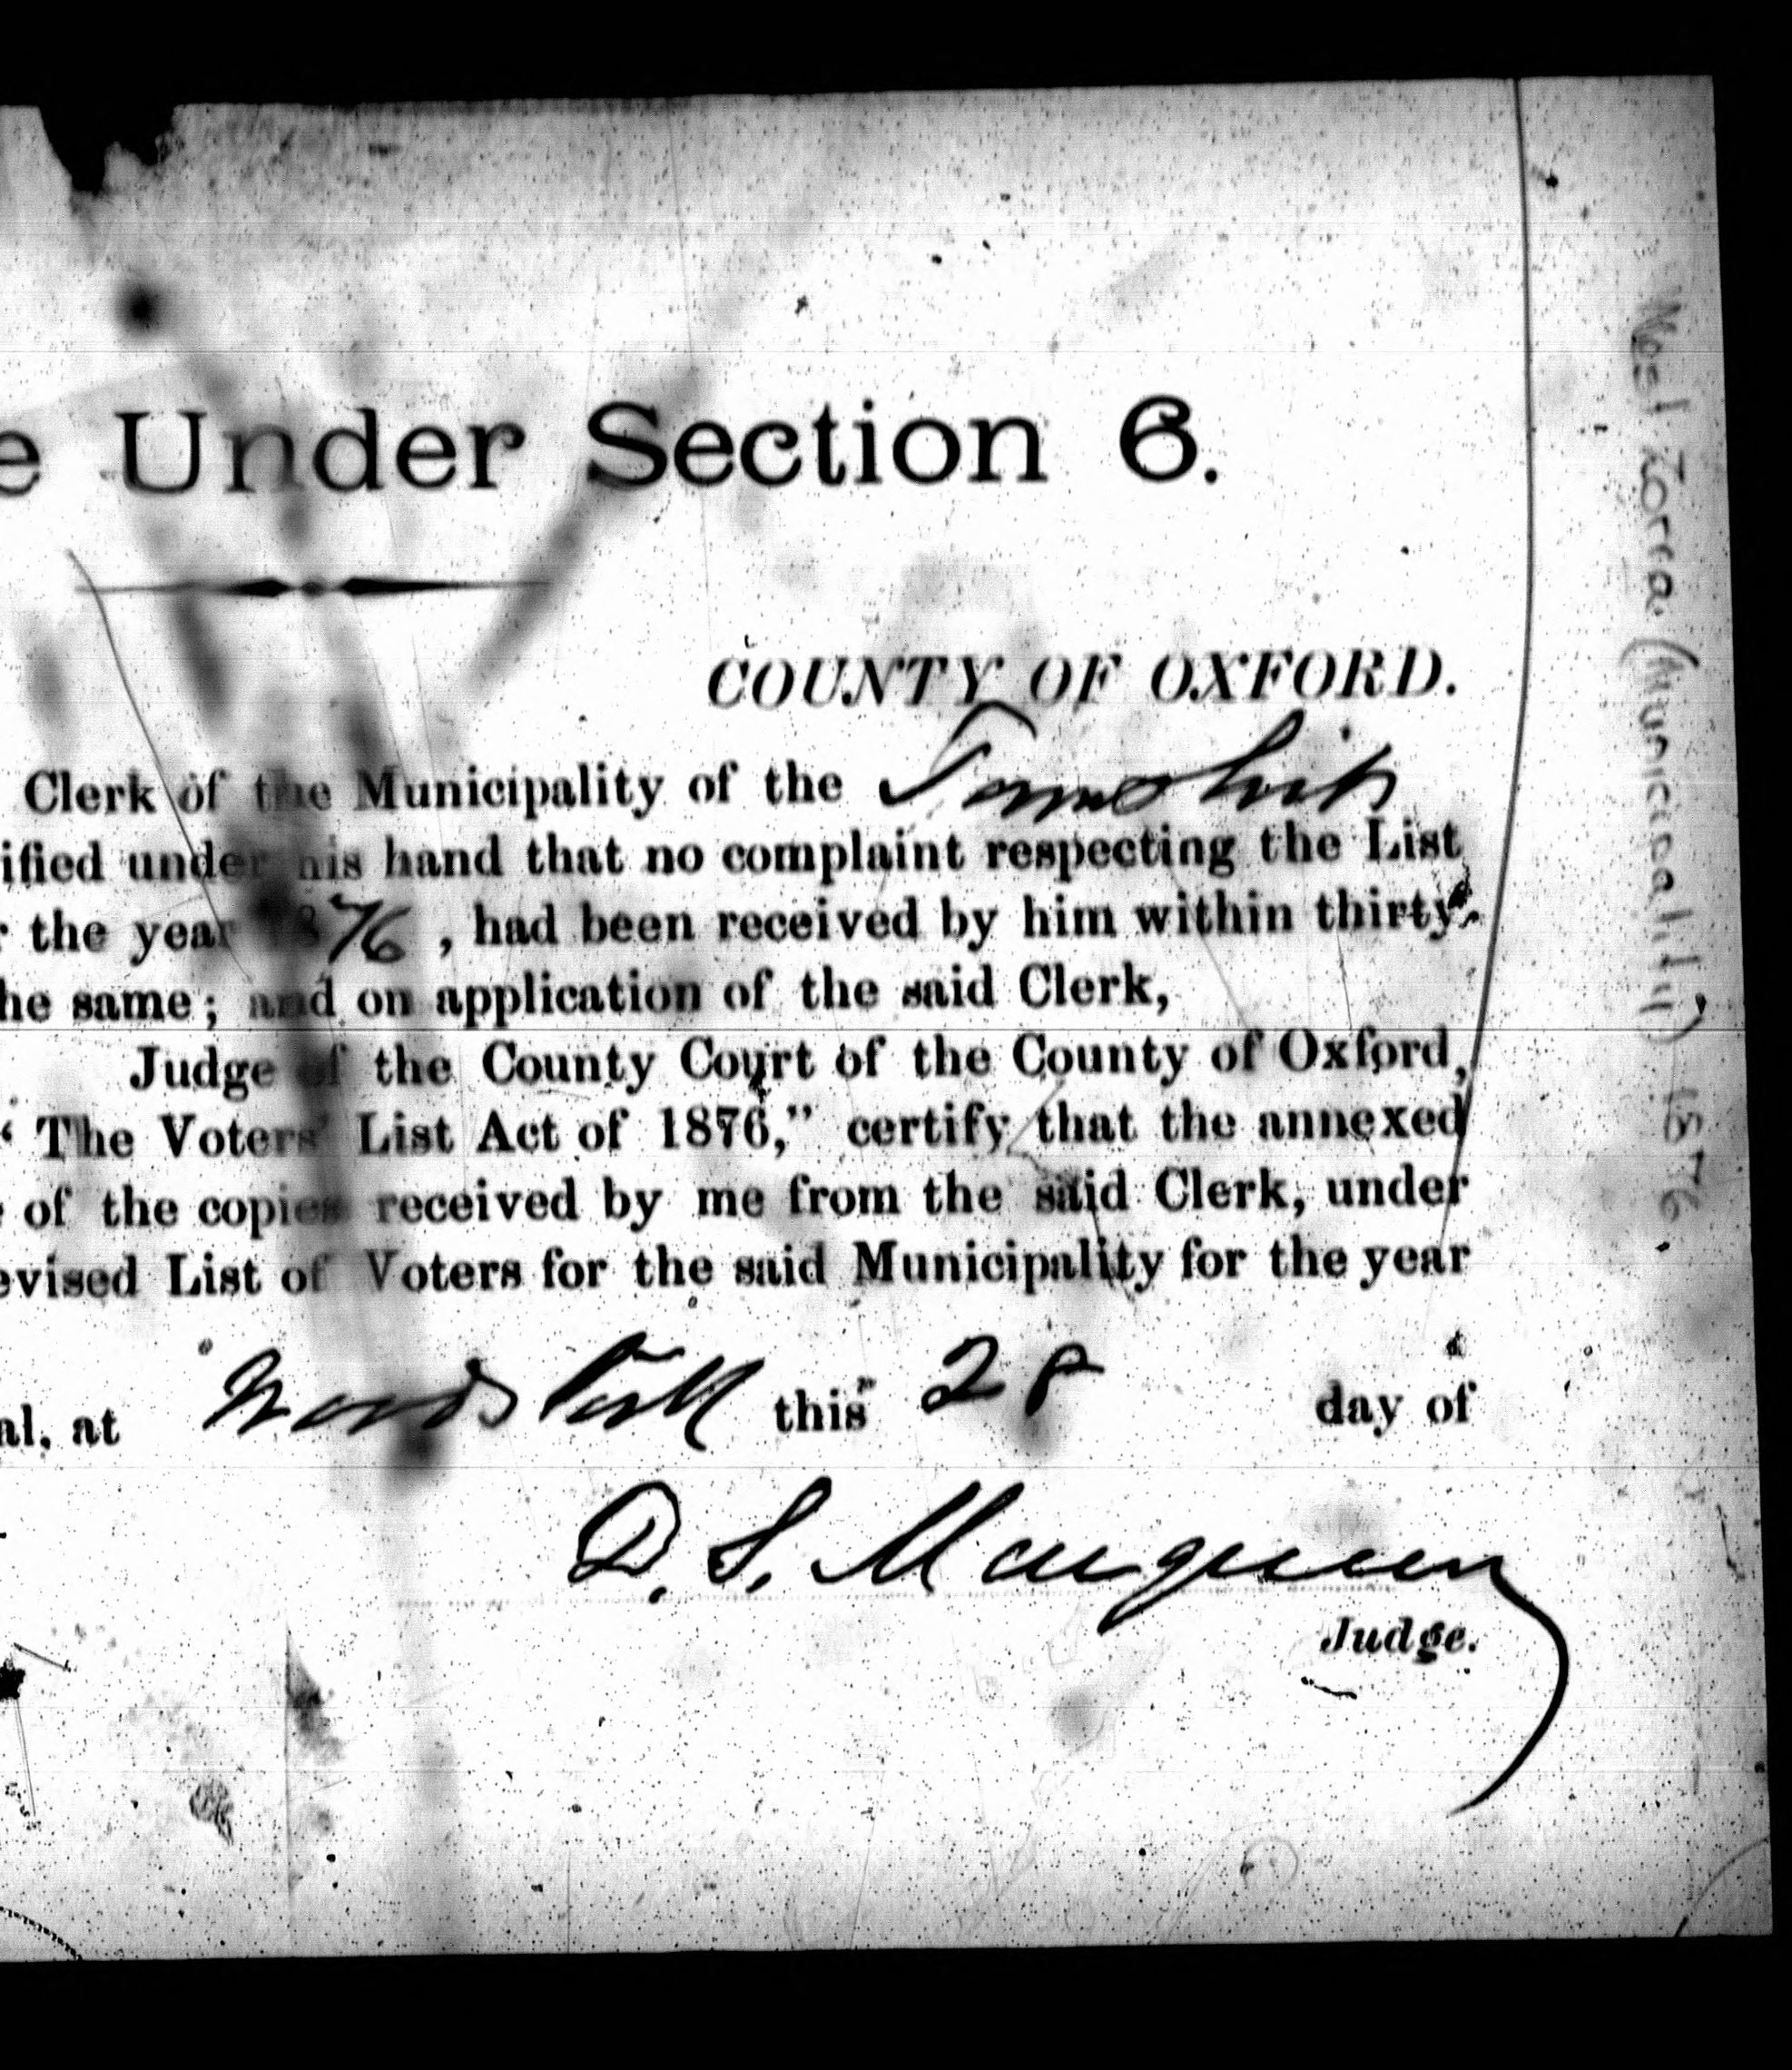 e Under Section 6.
COUNTY OF OXFORD.
Clerk of the Municipality of the Township
ified under his hand that no complaint respecting the List
r the year 1876, had been received by him within thirty
he same; and on application of the said Clerk,
Judge of the County Court of the County of Oxford,
“ The Voters' List Act of 1876,” certify that the annexed
e of the copies received by me from the said Clerk, under
evised List of Voters for the said Municipality for the year
al, at Woodstock this 28 day of
D. S. Macqueen
Judge.
West Zorra (Municipality) 1876